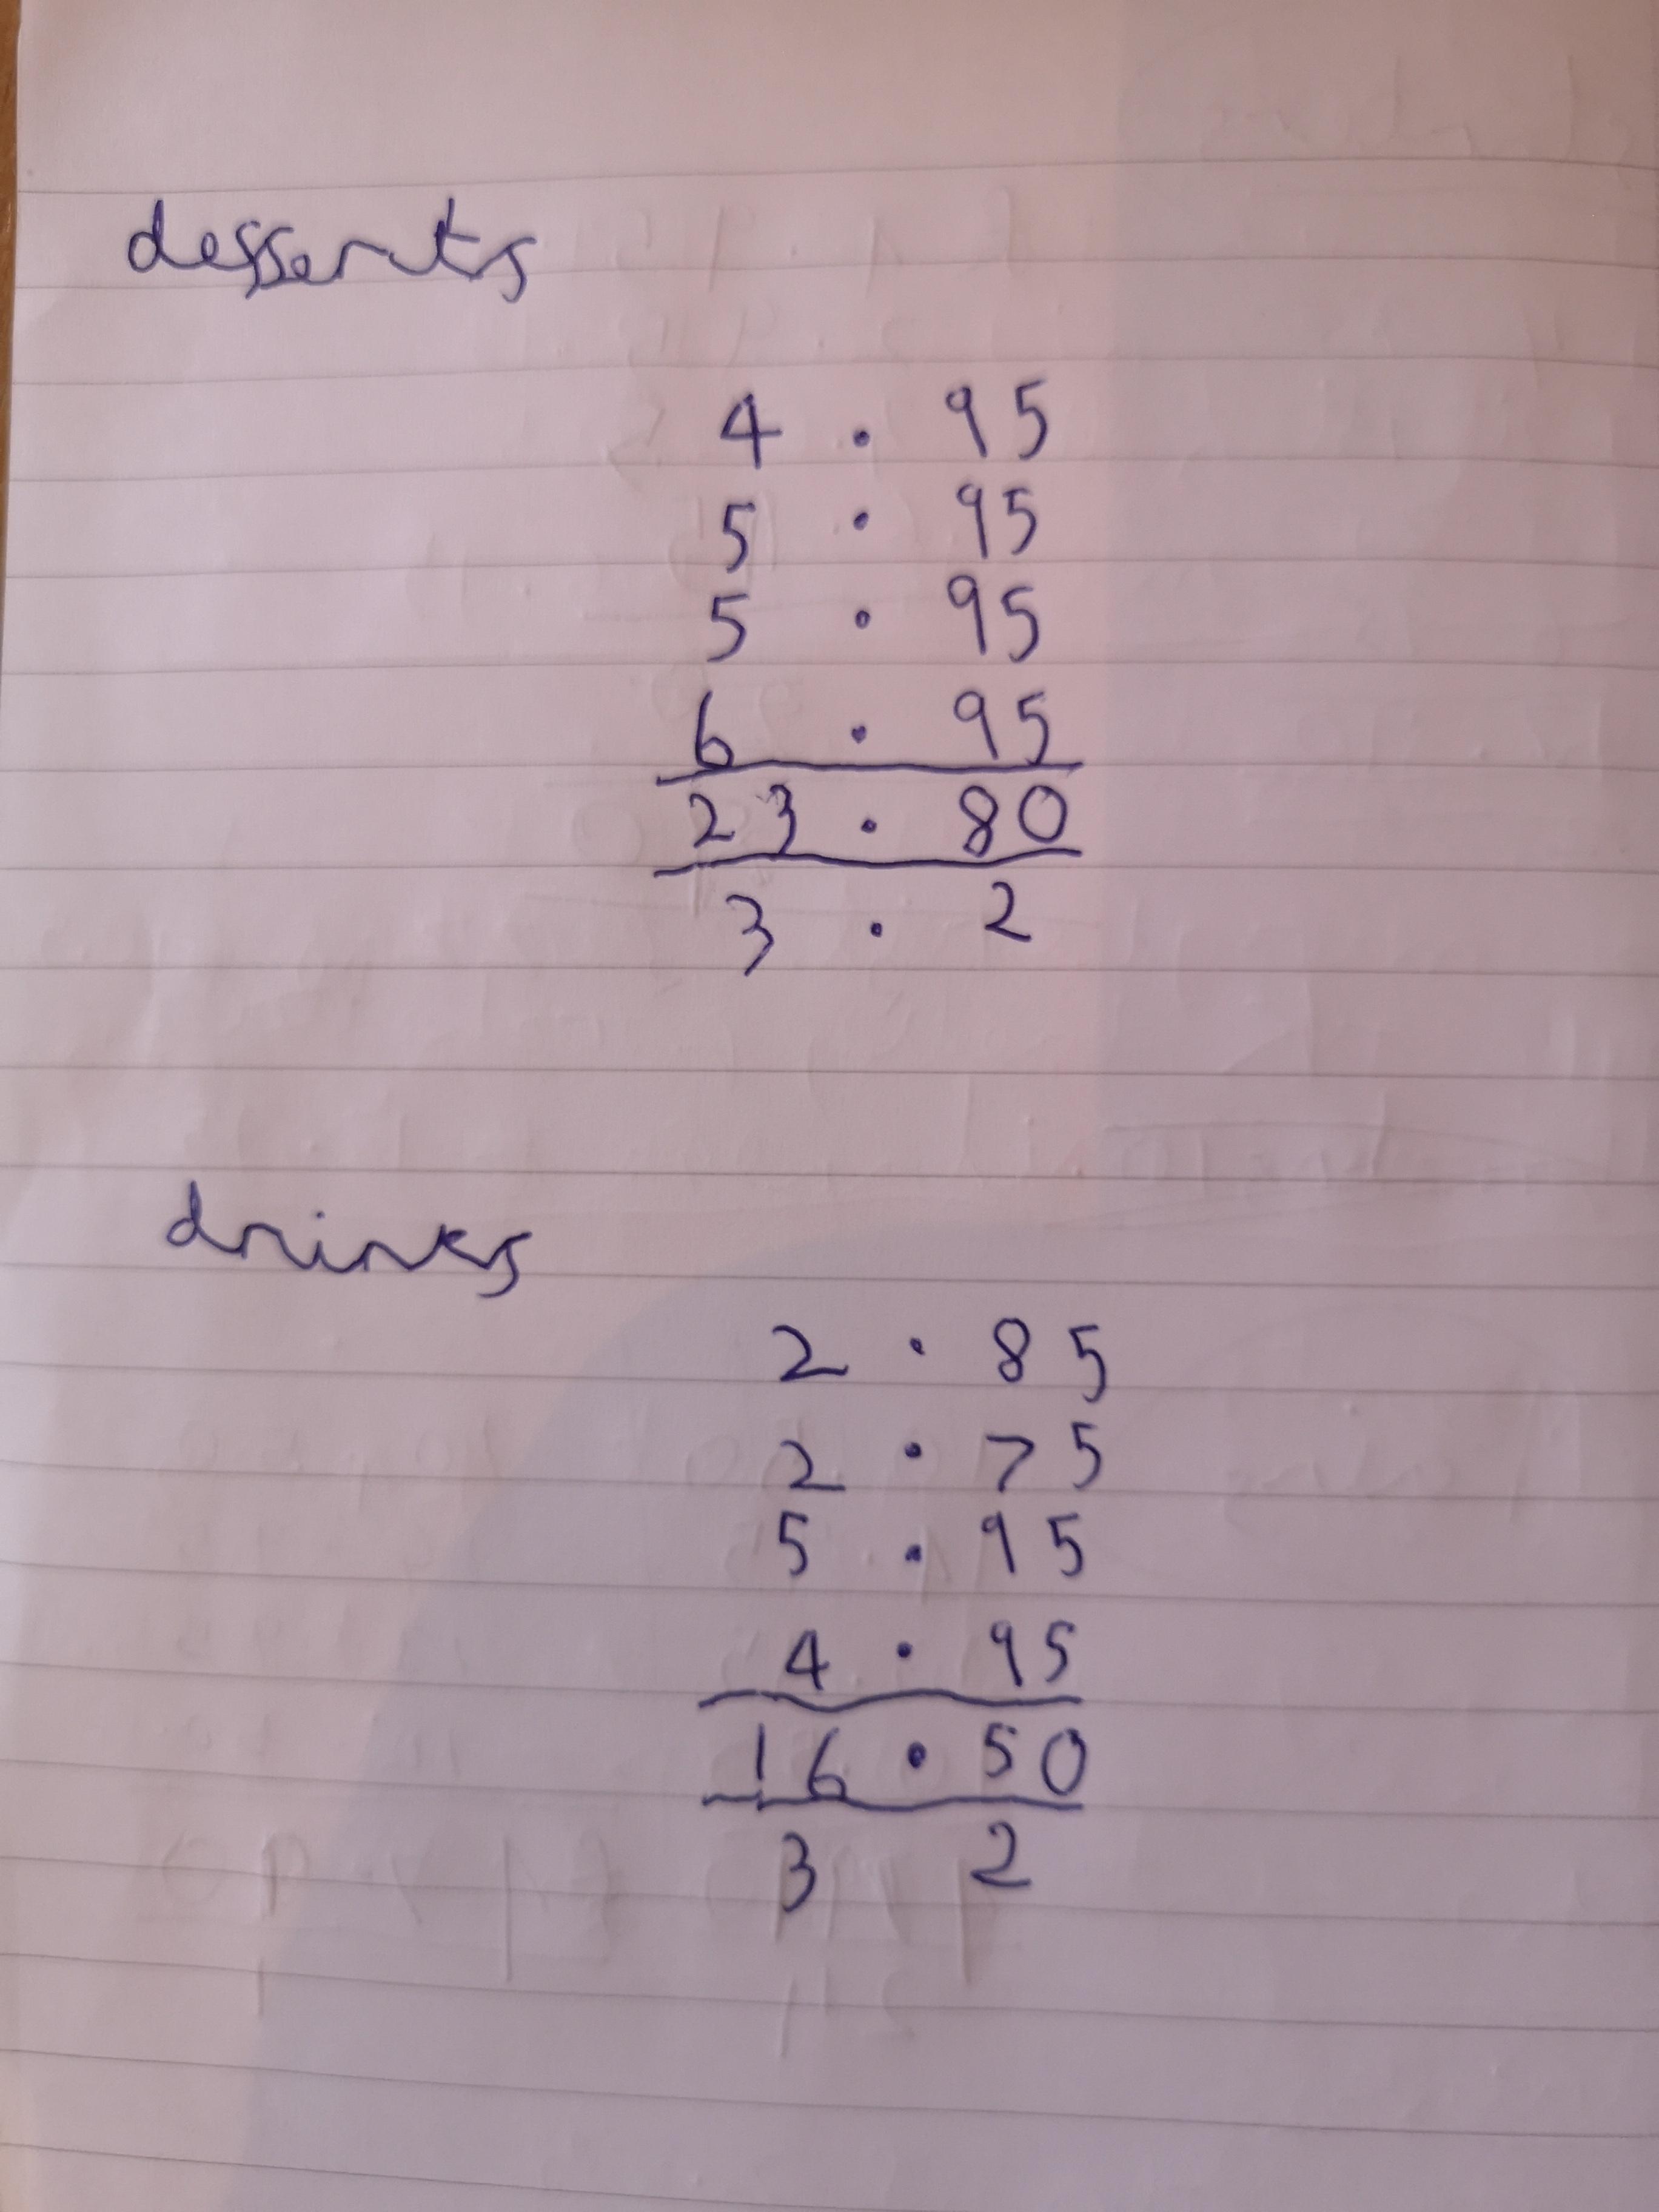 desserts
4 . 95
5 . 95
5 . 95
6 . 95
23 . 80
3 . 2
drinks
2 . 85
2 . 75
5 . 95
4 . 95
16 . 50
3 2